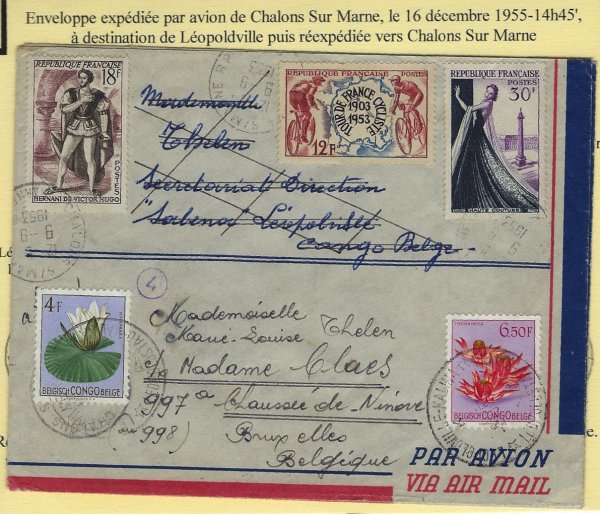 Enveloppe expédiée par avion de Chalons Sur Marne, le 16 décembre 1955-14h45',
à destination de Léopoldville puis réexpédiée vers Chalons Sur Marne
RÉPUBLIQUE FRANÇAISE
18F
POSTES
HERNANI DE VICTOR HUGO
RÉPUBLIQUE FRANÇAISE POSTES
TOUR DE FRANCE CYCLISTE
1903
1953
12F
RÉPUBLIQUE FRANÇAISE
30F
POSTES
HAUTE COUTURE
Mademoiselle
Thelen
Secrétariat Direction
"Sabena" Léopoldville
Congo Belge
9-9
1953
4
4F
BELGISCH CONGO BELGE
a
Mademoiselle
Marie-Louise Thelen
Madame Claes
997 a Chaussée de Ninove
(ou 998) Bruxelles
Belgique
THONNINGIA
6,50F
BELGISCH CONGO BELGE
PAR AVION
VIA AIR MAIL